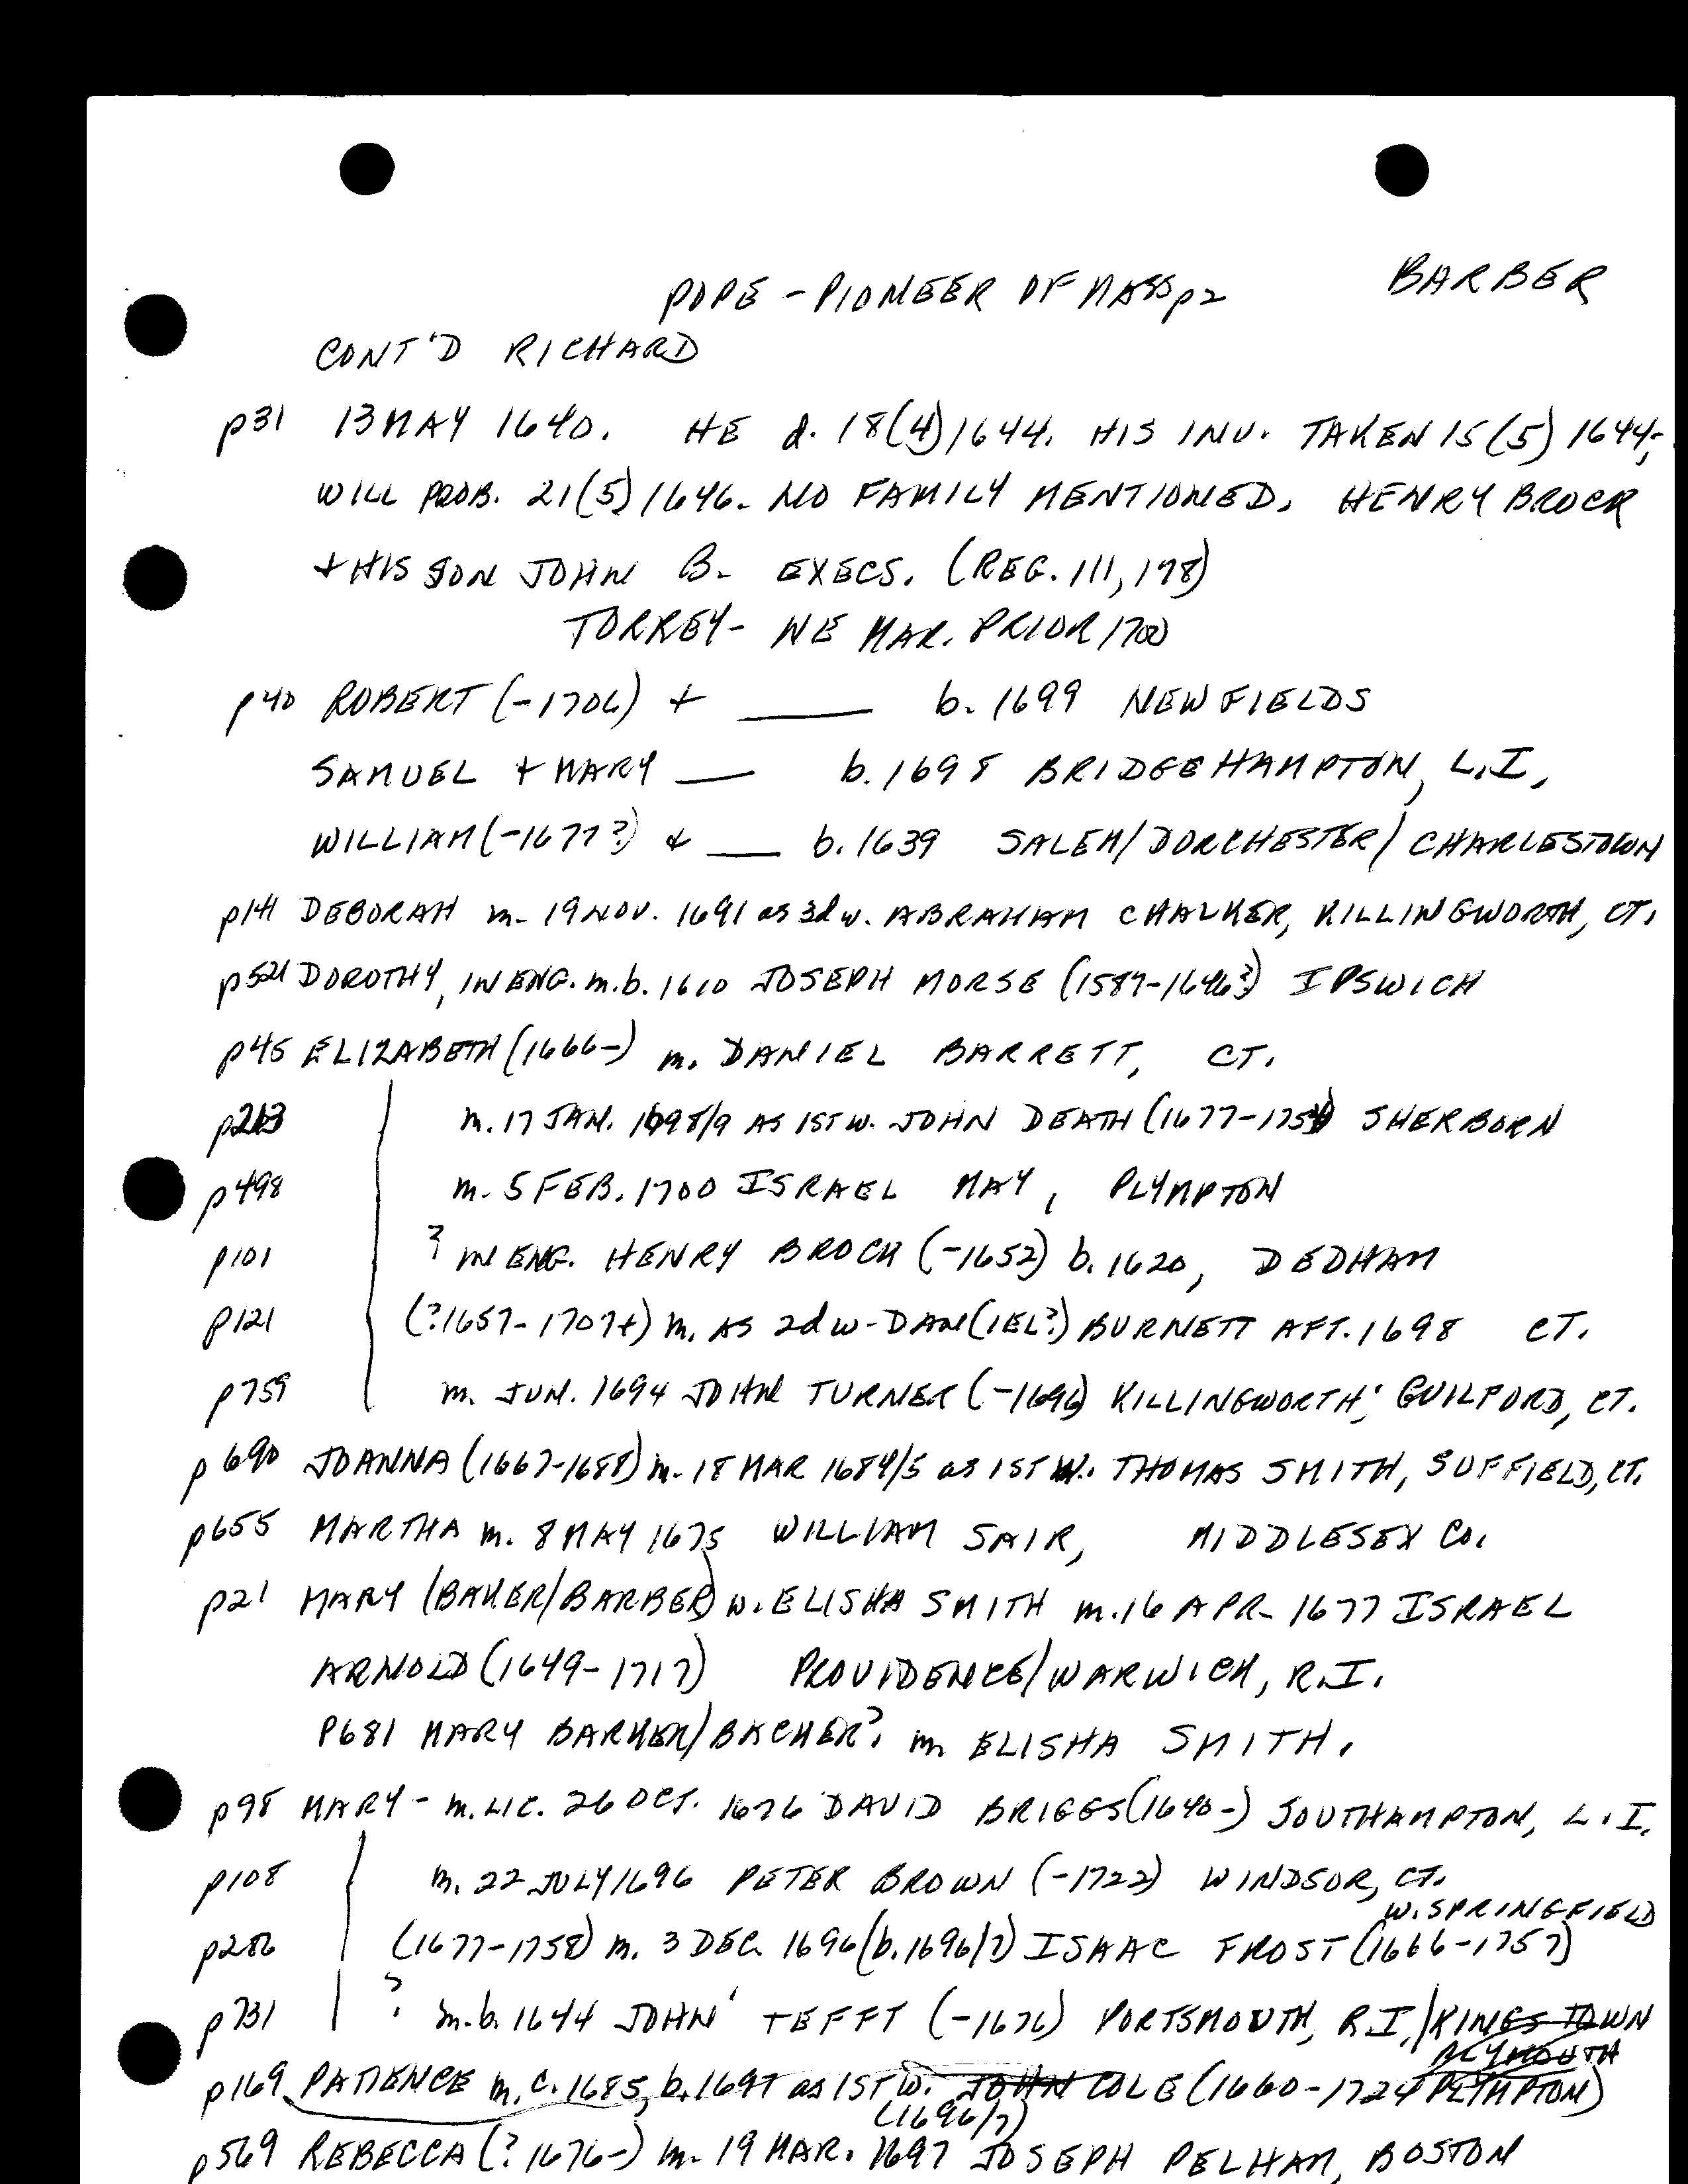 BARBER
POPE - PIONEER OF MASS p2
CONT'D RICHARD
p31 13 MAY 1640. HE d. 18(4)1644. HIS INV. TAKEN 15(5) 1644;
WILL PROB. 21(5)1646. NO FAMILY MENTIONED. HENRY BROCK
+ HIS SON JOHN B. EXECS. (REG. III, 178)
TORREY - NE MAR. PRIOR 1700
p40 ROBERT (-1706) + ____ b. 1699 NEWFIELDS
SAMUEL + MARY ___ b. 1698 BRIDGEHAMPTON, L.I.
WILLIAM (-1677?) & ___ b. 1639 SALEM/DORCHESTER/CHARLESTOWN
p141 DEBORAH m. 19 NOV. 1691 as 3d w. ABRAHAM CHALKER, KILLINGWORTH, CT.
p521 DOROTHY, IN ENG. m. b. 1610 JOSEPH MORSE (1587-1646?) IPSWICH
p45 ELIZABETH (1666-) m. DANIEL BARRETT, CT.
p213 m. 17 JAN. 1698/9 AS 1ST W. JOHN DEATH (1677-1754) SHERBORN
p498 m. 5 FEB. 1700 ISRAEL MAY, PLYMPTON
p101 ? IN ENG. HENRY BROCK (-1652) b. 1620, DEDHAM
p121 (?1657-1707+) m. AS 2d w. DAN(IEL?) BURNETT AFT. 1698 CT.
p759 m. JUN. 1694 JOHN TURNER (-1696) KILLINGWORTH; GUILFORD, CT.
p690 JOANNA (1667-1688) m. 18 MAR 1684/5 as 1ST W. THOMAS SMITH, SUFFIELD, CT.
p655 MARTHA m. 8 MAY 1675 WILLIAM SAIR, MIDDLESEX CO.
p21 MARY (BAKER/BARBER) w. ELISHA SMITH m. 16 APR. 1677 ISRAEL
ARNOLD (1649-1717) PROVIDENCE/WARWICK, R.I.
P681 MARY BARKER/BACHER? m ELISHA SMITH.
p98 MARY - m. LIC. 26 OCT. 1676 DAVID BRIGGS (1640-) SOUTHAMPTON, L.I.
p108 m. 22 JULY 1696 PETER BROWN (-1722) WINDSOR, CT.
W. SPRINGFIELD
p286 (1677-1758) m. 3 DEC. 1696 (b. 1696/7) ISAAC FROST (1666-1757)
p731 ? m. b. 1644 JOHN TEFFT (-1676) PORTSMOUTH, R.I./KINGSTOWN
PLYMOUTH
p169 PATIENCE m. c. 1685, b. 1697 as 1ST W. JOHN COLE (1660-1724 PLYMPTON)
(1696/7)
p569 REBECCA (? 1676-) m. 19 MAR. 1697 JOSEPH PELHAM, BOSTON